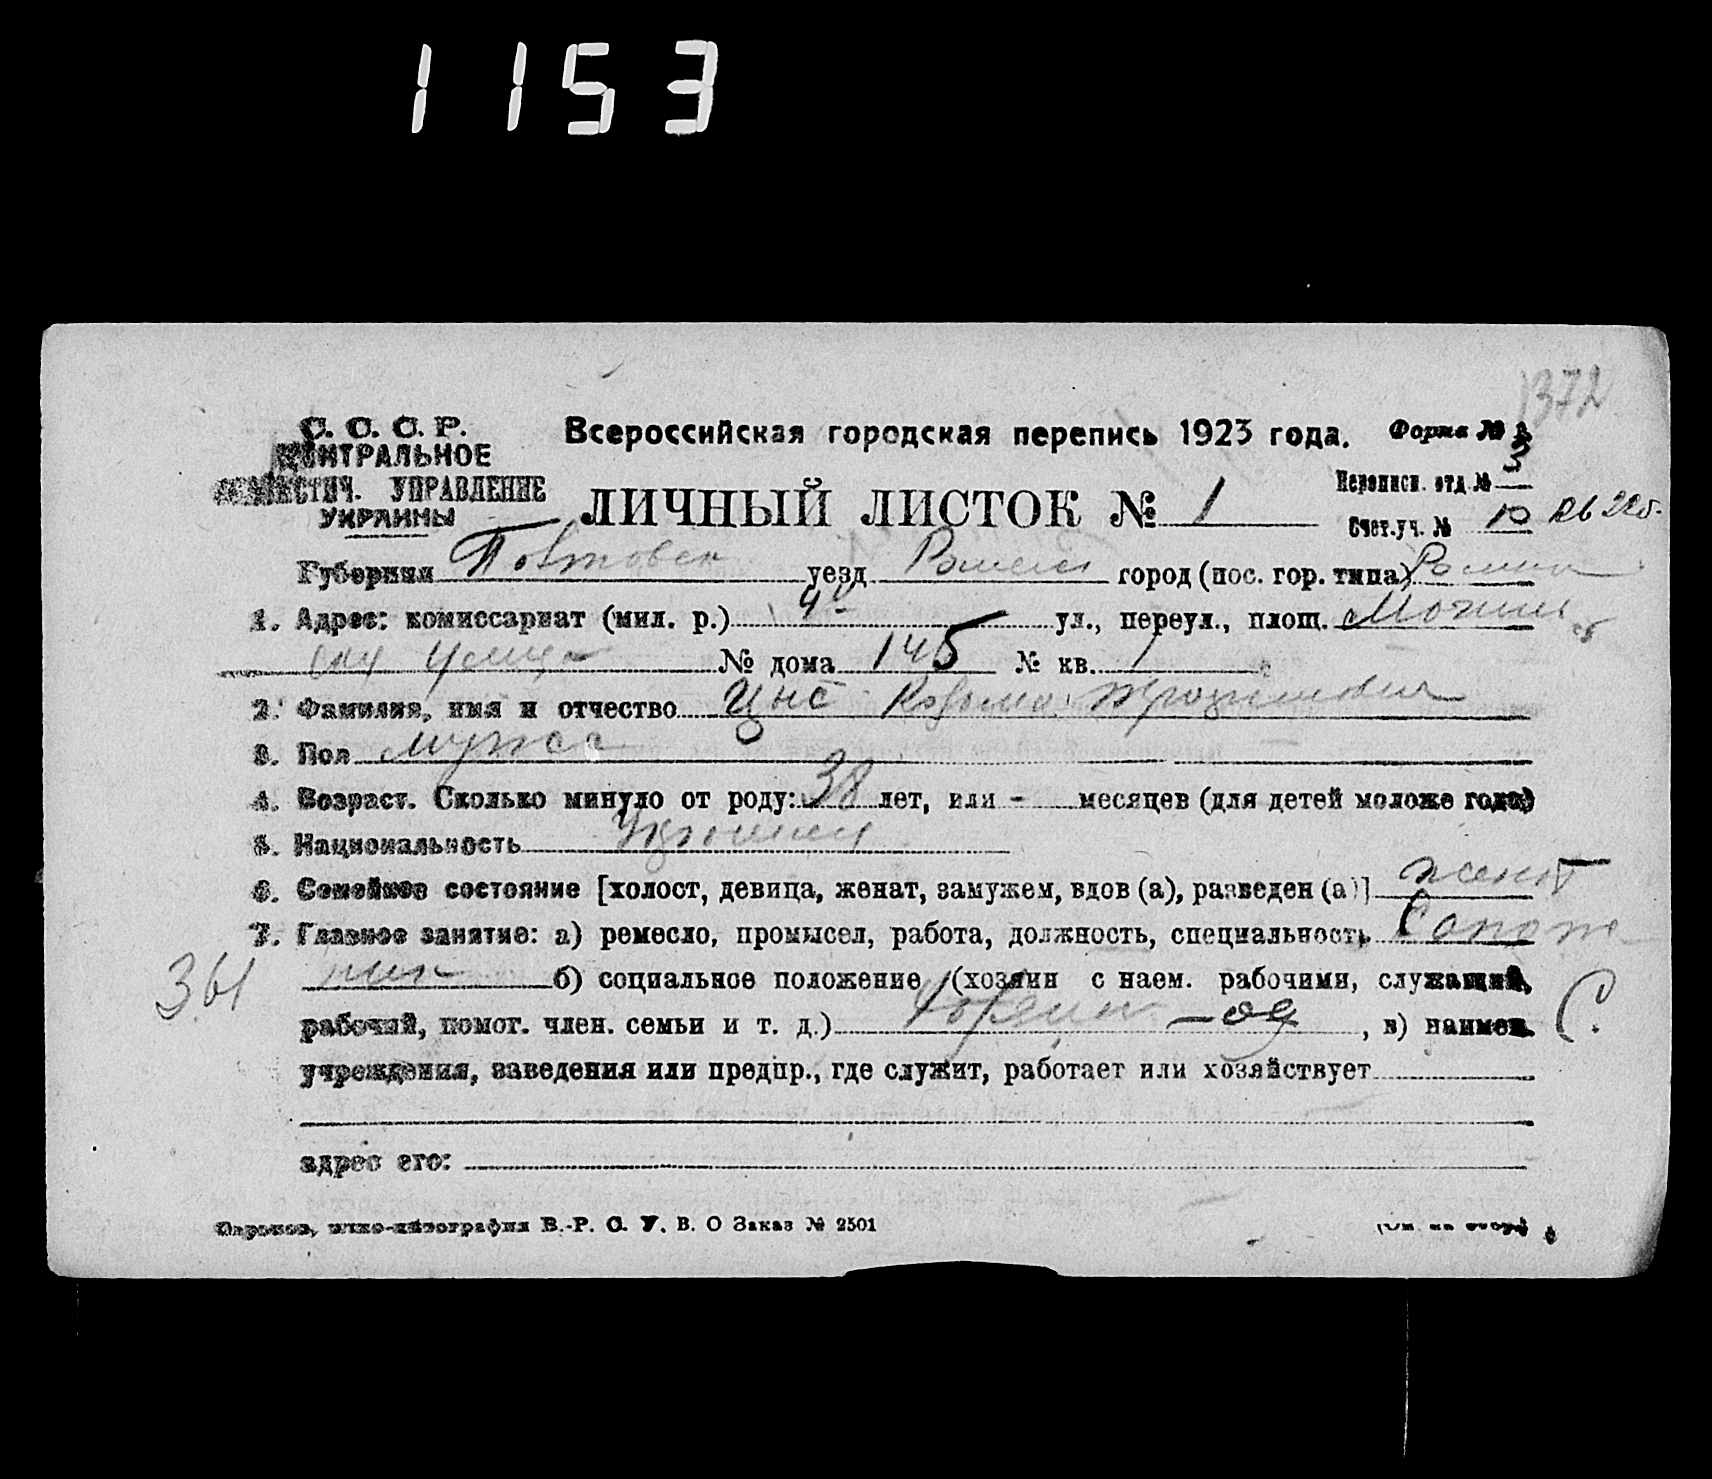 1153
1372
С. С. С. Р.
ЦЕНТРАЛЬНОЕ
СТАТИСТИЧ. УПРАВЛЕНИЕ
УКРАИНЫ
Всероссийская городская перепись 1923 года.
Форма №
3
ЛИЧНЫЙ ЛИСТОК № 1
Переписн. отд №
Счет.уч. № 10
Губерния Полтавск уезд Ромен город (пос. гор. типа) Ромны
1. Адрес: комиссариат (мил. р.) 4й ул., переул., площ. Могиль
ская улица № дома 145 № кв. 1
2. Фамилия, имя и отчество Цыс Козьма
3. Пол мужск
4. Возраст. Сколько минуло от роду: 38 лет, или - месяцев (для детей моложе года)
5. Национальность Украинец
6. Семейное состояние [холост, девица, женат, замужем, вдов (а), разведен (а)] женат
7. Главное занятие: а) ремесло, промысел, работа, должность, специальность Сапож
ник б) социальное положение (хозяин с наем. рабочими, служащий,
361
рабочий, помог. член. семьи и т. д.) хозяин - од , в) наимен.
С.
учреждения, заведения или предпр., где служит, работает или хозяйствует
адрес его:
В.-Р. С. У. В. О Заказ № 2501